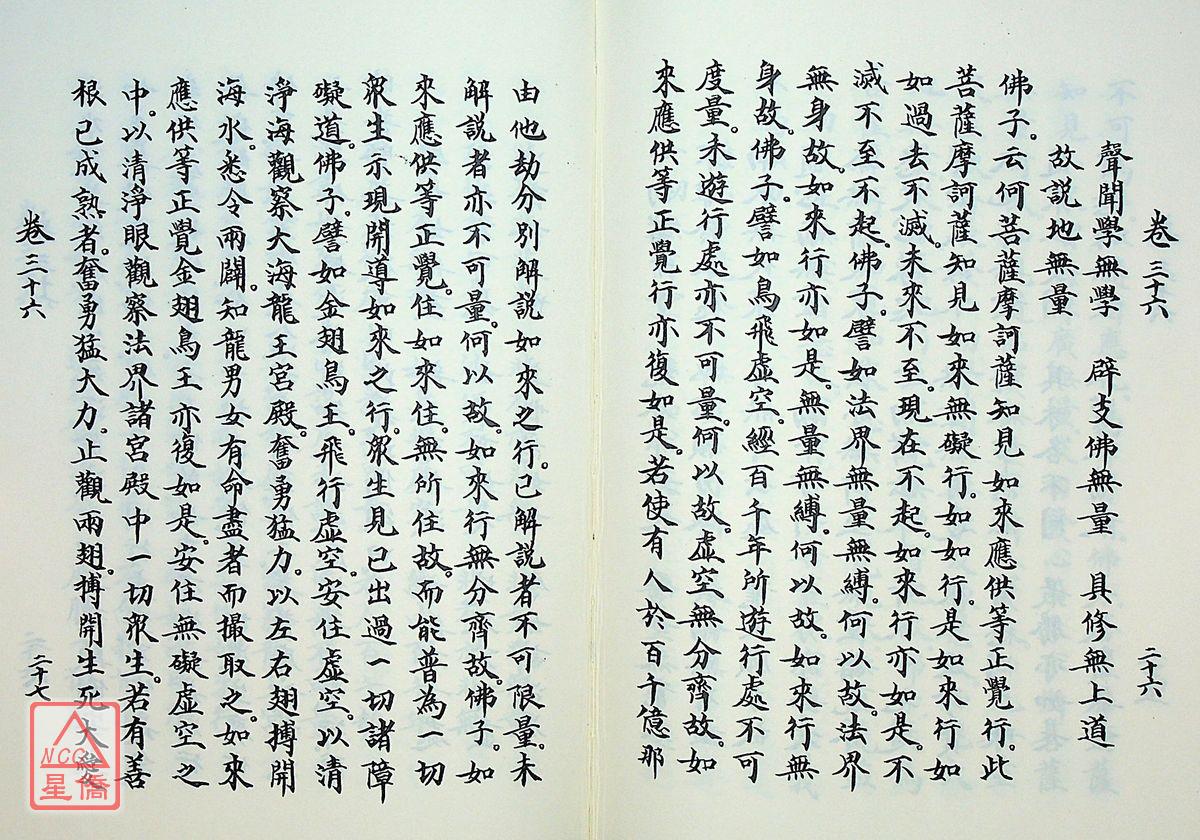 卷三十六
二十六
聲聞學無學　辟支佛無量　具修無上道
故說地無量
佛子。云何菩薩摩訶薩知見如來應供等正覺行。此
菩薩摩訶薩知見如來無礙行。如如行。是如來行如
如過去不滅。未來不至。現在不起。如來行亦如是。不
滅不至不起。佛子。譬如法界無量無縛。何以故。法界
無身故。如來行亦如是。無量無縛。何以故。如來行無
身故。佛子。譬如鳥飛虛空。經百千年所遊行處不可
度量。未遊行處亦不可量。何以故。虛空無分齊故。如
來應供等正覺行亦復如是。若使有人於百千億那
由他劫分別解說如來之行。已解說者不可限量。未
解說者亦不可量。何以故。如來行無分齊故。佛子。如
來應供等正覺。住如來住。無所住故。而能普為一切
眾生示現開導如來之行。眾生見已出過一切諸障
礙道。佛子。譬如金翅鳥王。飛行虛空。安住虛空。以清
淨海觀察大海龍王宮殿。奮勇猛力。以左右翅搏開
海水。悉令兩闢。知龍男女有命盡者而撮取之。如來
應供等正覺金翅鳥王亦復如是。安住無礙虛空之
中。以清淨眼觀察法界諸宮殿中一切眾生。若有善
根已成熟者。奮勇猛大力。止觀兩翅。搏開生死大
卷三十六
二十七
NCC
星僑